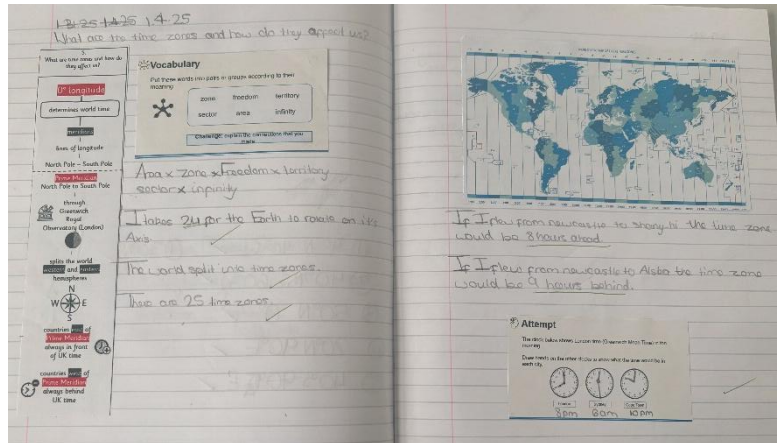 1.4.25
What are the time zones and how do they appeal us?
What are time zones and how do
they affect us?
0° longitude
determines world time
meridians
lines of longitude
North Pole – South Pole
Prime Meridian
North Pole to South Pole
through
Greenwich
Royal
Observatory (London)
splits the world
western and eastern
hemispheres
N
W E
S
countries east of
Prime Meridian
always in front
of UK time
countries west of
Prime Meridian
always behind
UK time
Vocabulary
Put these words into pairs or groups according to their
meaning
zone freedom territory
sector area infinity
Challenge: explain the connections that you
made
Area x zone x Freedom x territory
sector x infinity
It takes 24 for the Earth to rotate on it's
Axis.
The world split into time zones.
There are 25 time zones.
If I flew from newcastle to the time zone
would be 8 hours ahead.
If I flew from newcastle to the time zone
would be 9 hours behind.
Attempt
The clock below shows London time (Greenwich Mean Time) in the
morning.
Draw hands on the other clocks to show what the time would be in
each city.
8pm 6am 10pm